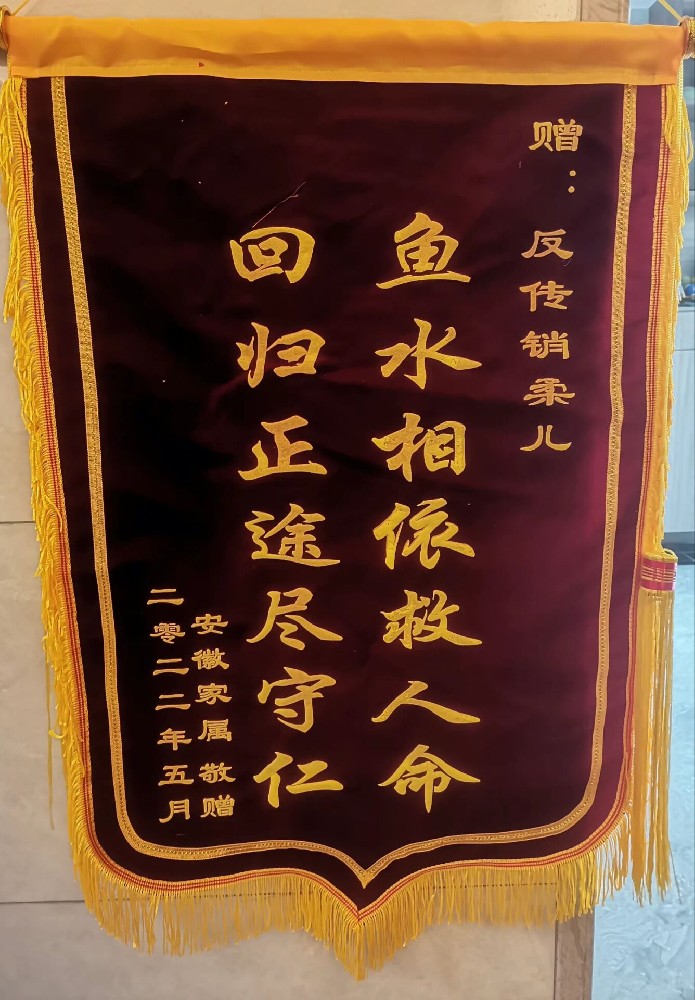 赠：反传销柔儿
鱼水相依救人命
回归正途尽守仁
安徽家属敬赠
二零二二年五月